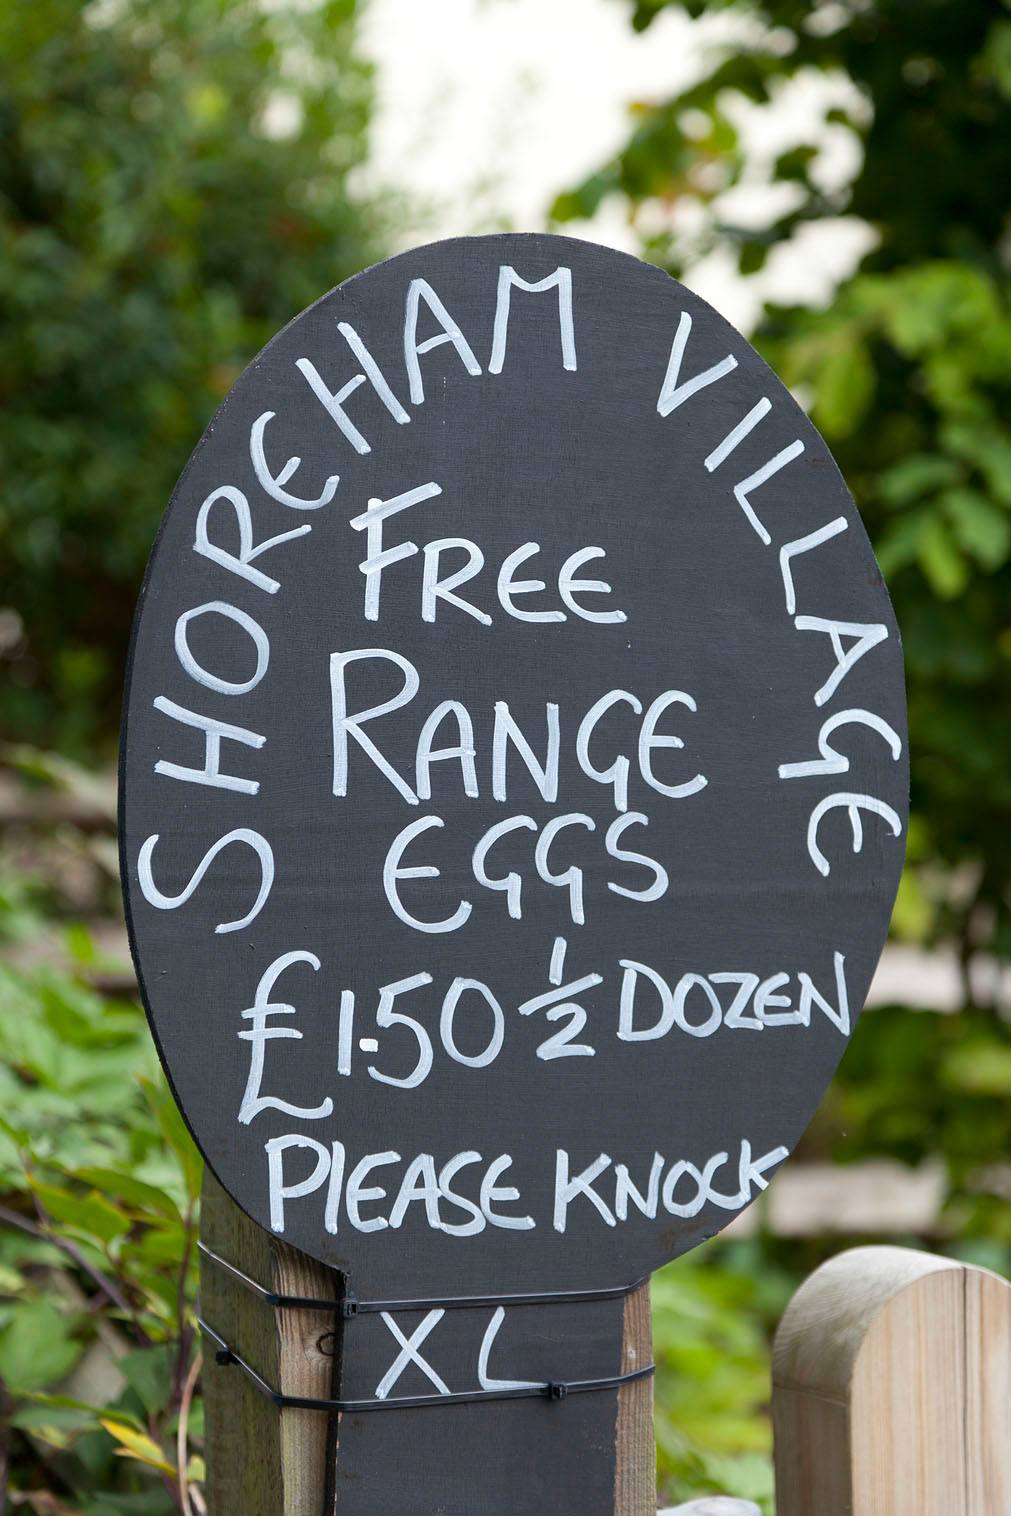 SHOREHAM VILLAGE
FREE
RANGE
EGGS
£1.50 ½ DOZEN
PLEASE KNOCK
XL